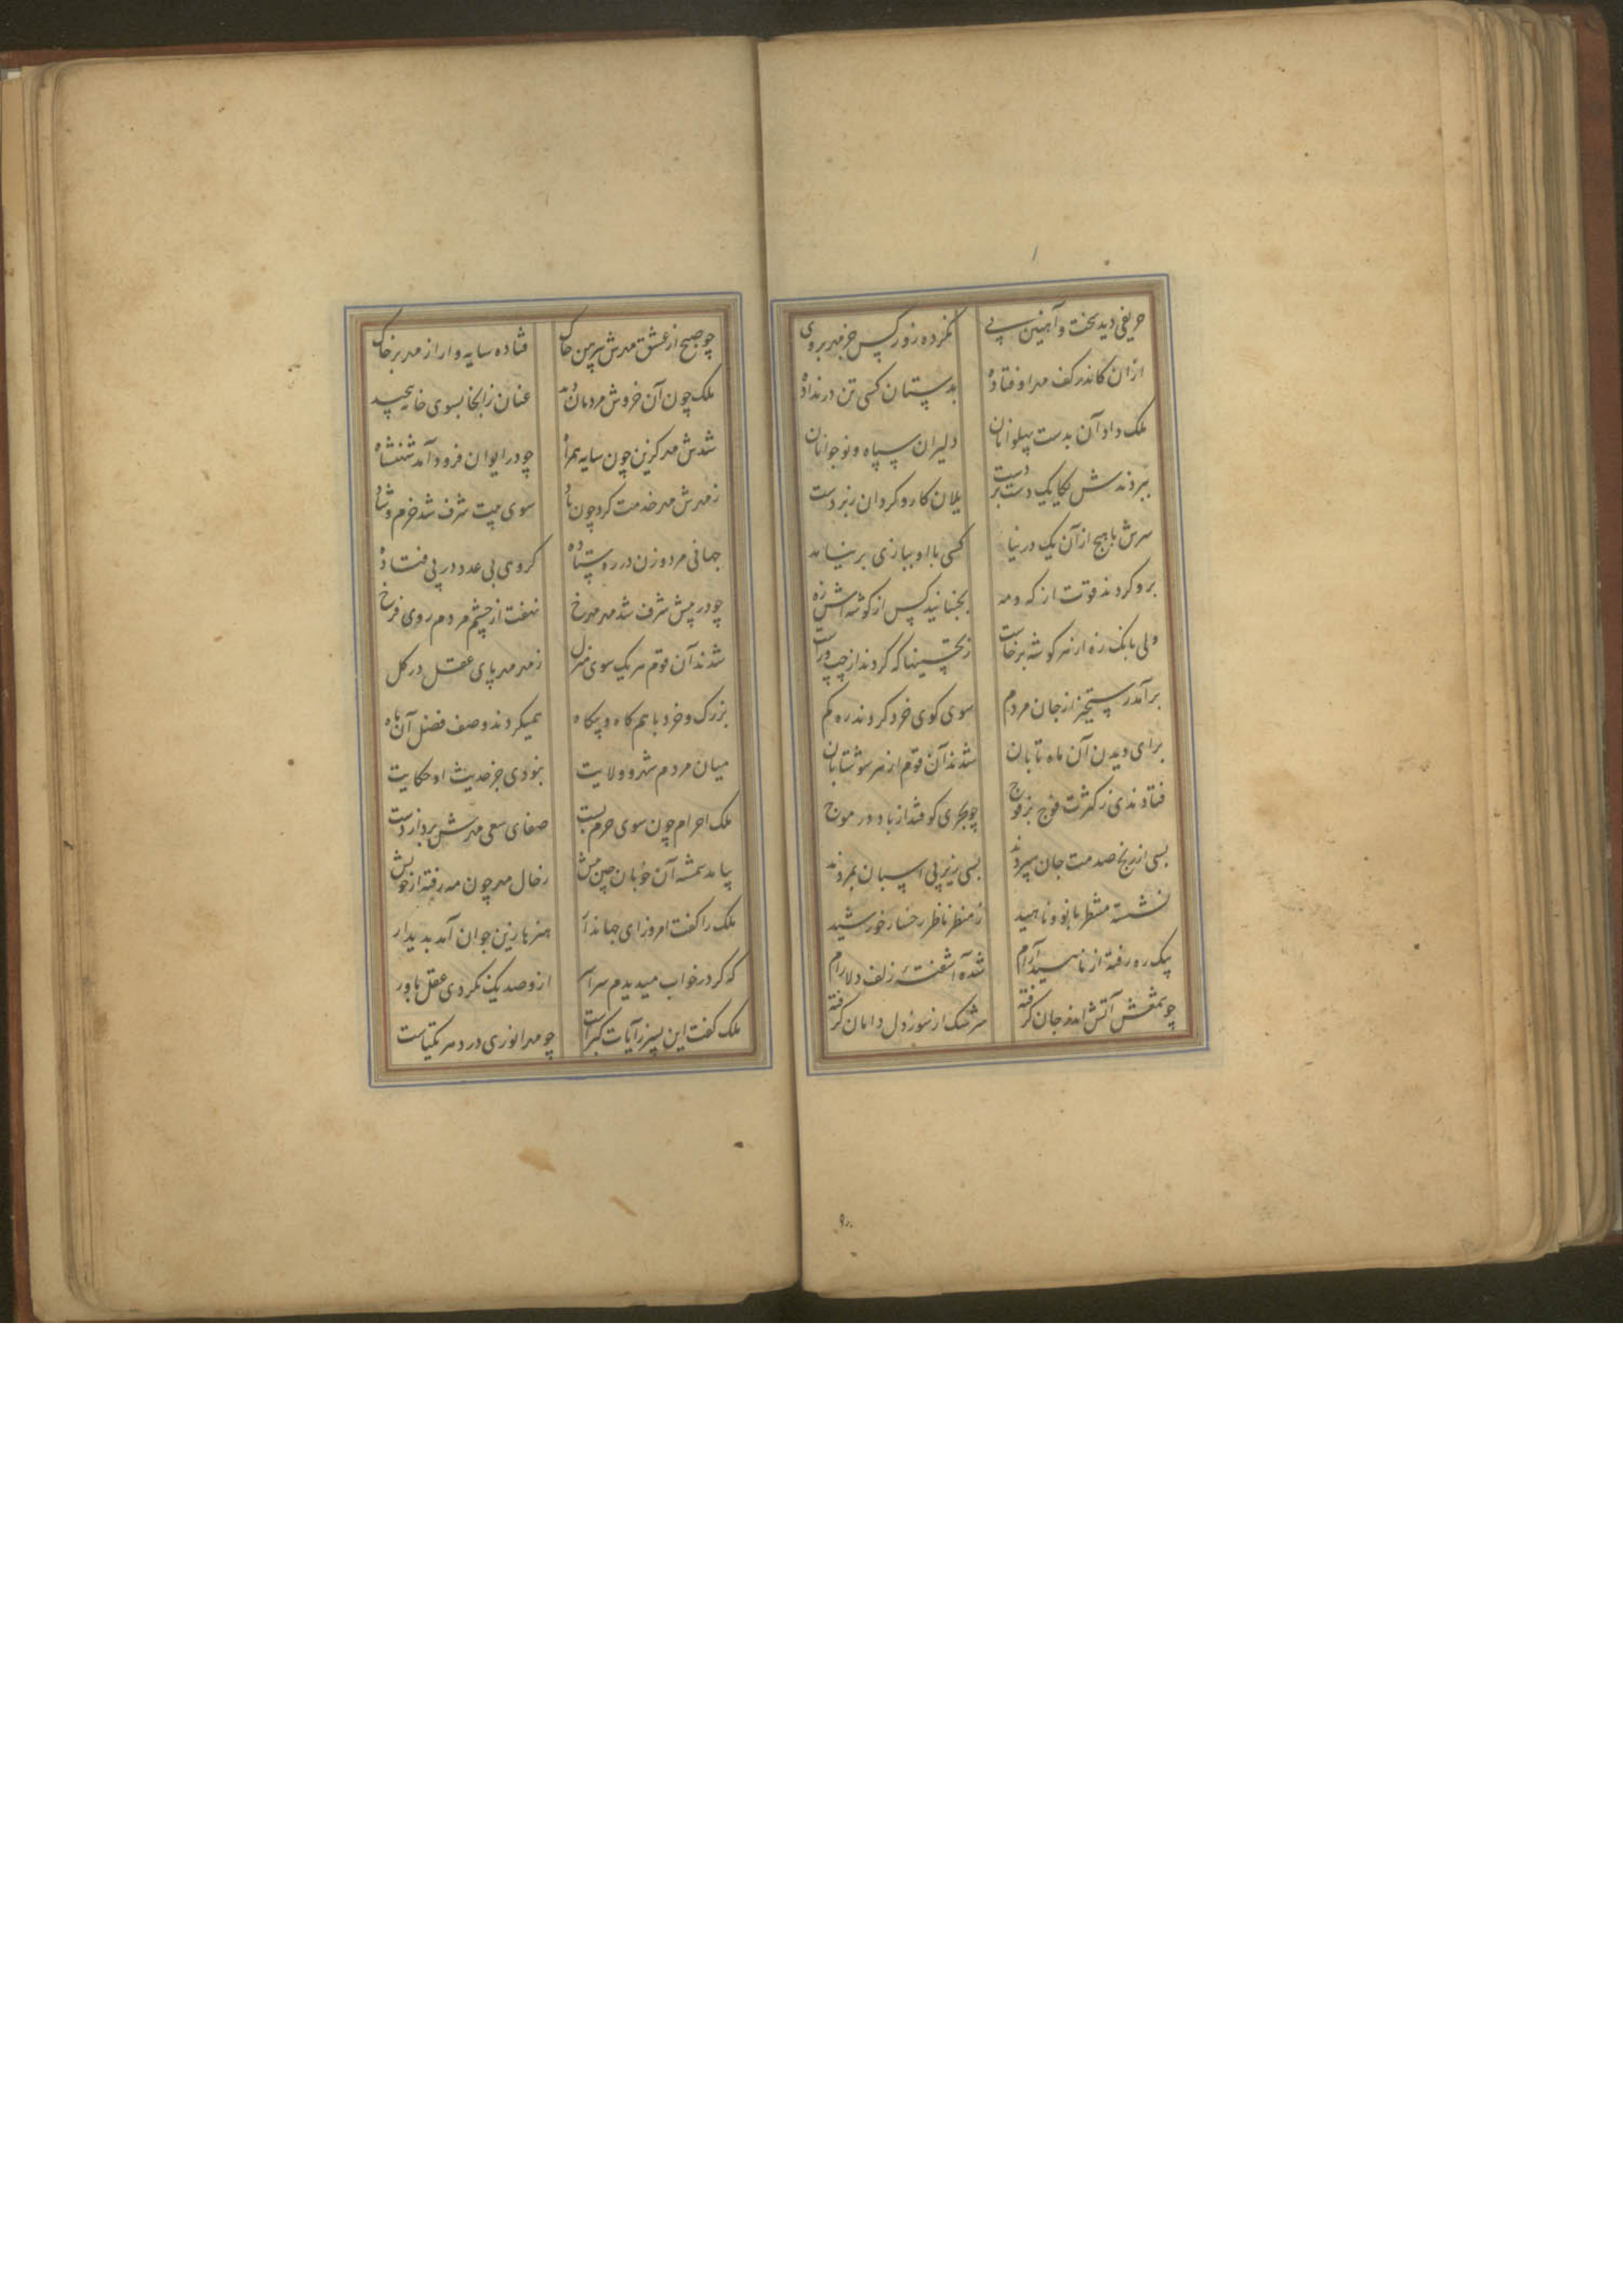 حریفی دید سخت و آهنین پی نکرده زور کس جز مهر بر وی
ازان کاندر کف مهر اوفتاده بدستان کسی تن در نداده
ملک داد آن بدست پهلوانان دلیران سپاه و نوجوانان
ببردندش یکایک دست بر دست یلان کار و کردان زبردست
سرش با هیچ از آن یک در نیامد کسی با او ببازی بر نیامد
برو کردند قوت از که و مه نجنبانید کس از کوشه اش زه
ولی بانک زه از هر کوشه برخاست ز تحسینها که کردند از چپ و راست
برآمد رستخیز از جان مردم سوی کوی خرد کردند ره کم
برای دیدن آن ماه تابان شدند آن قوم از هر سو شتابان
فتادندی ز کثرت فوج بر فوج چو بحری کو فتد از باد در موج
بسی از رنج صدمت جان سپردند بسی زیر پی اسبان بمردند
نشسته منتظر بانو و ناهید ز منظر ناظر رخسار خورشید
یک ره رفته از ناهید آرام شده آشفتهٔ زلف دلارام
چو شمعش آتش اندر جان کرفته سرشک از سوز دل دامان کرفته
چو صبح از عشق مهرش پیرهن چاک فتاده سایه وار از مهر بر خاک
ملک چون آن خروش مردمان دید عنان زانجا بسوی خانه پیچید
شدش مهر کزین چون سایه همراه چو در ایوان فرود آمد شهنشاه
ز مهرش مهر خدمت کرد چون سوی بیت شرف شد خرم و شاد
جهانی مرد و زن در ره ستاده کروی بی عدد در پی فتاده
چو در پیش شرف شد مهر مهرخ نهفت از چشم مردم روی فرخ
شدند آن قوم هر یک سوی منزل ز مهر مهر پای عقل در کل
بزرک و خرد با هم کاه و بیکاه همیکردند وصف فضل آن ماه
میان مردم شهر و ولایت نبودی جز حدیث او حکایت
ملک احرام چون سوی حرم بست صفای سعی مهرش برد از دست
بیامد شمسهٔ آن خوبان چین پیش ز خال مهر چون مه رفته از خویش
ملک را کفت امروز ای جهاندار هنرها زین جوان آمد بدیدار
که کر در خواب میدیدم سراسر از و صد یک نکردی عقل باور
ملک کفت این پسر ز آیات کبراست چو مهر انوری در دهر یکتاست